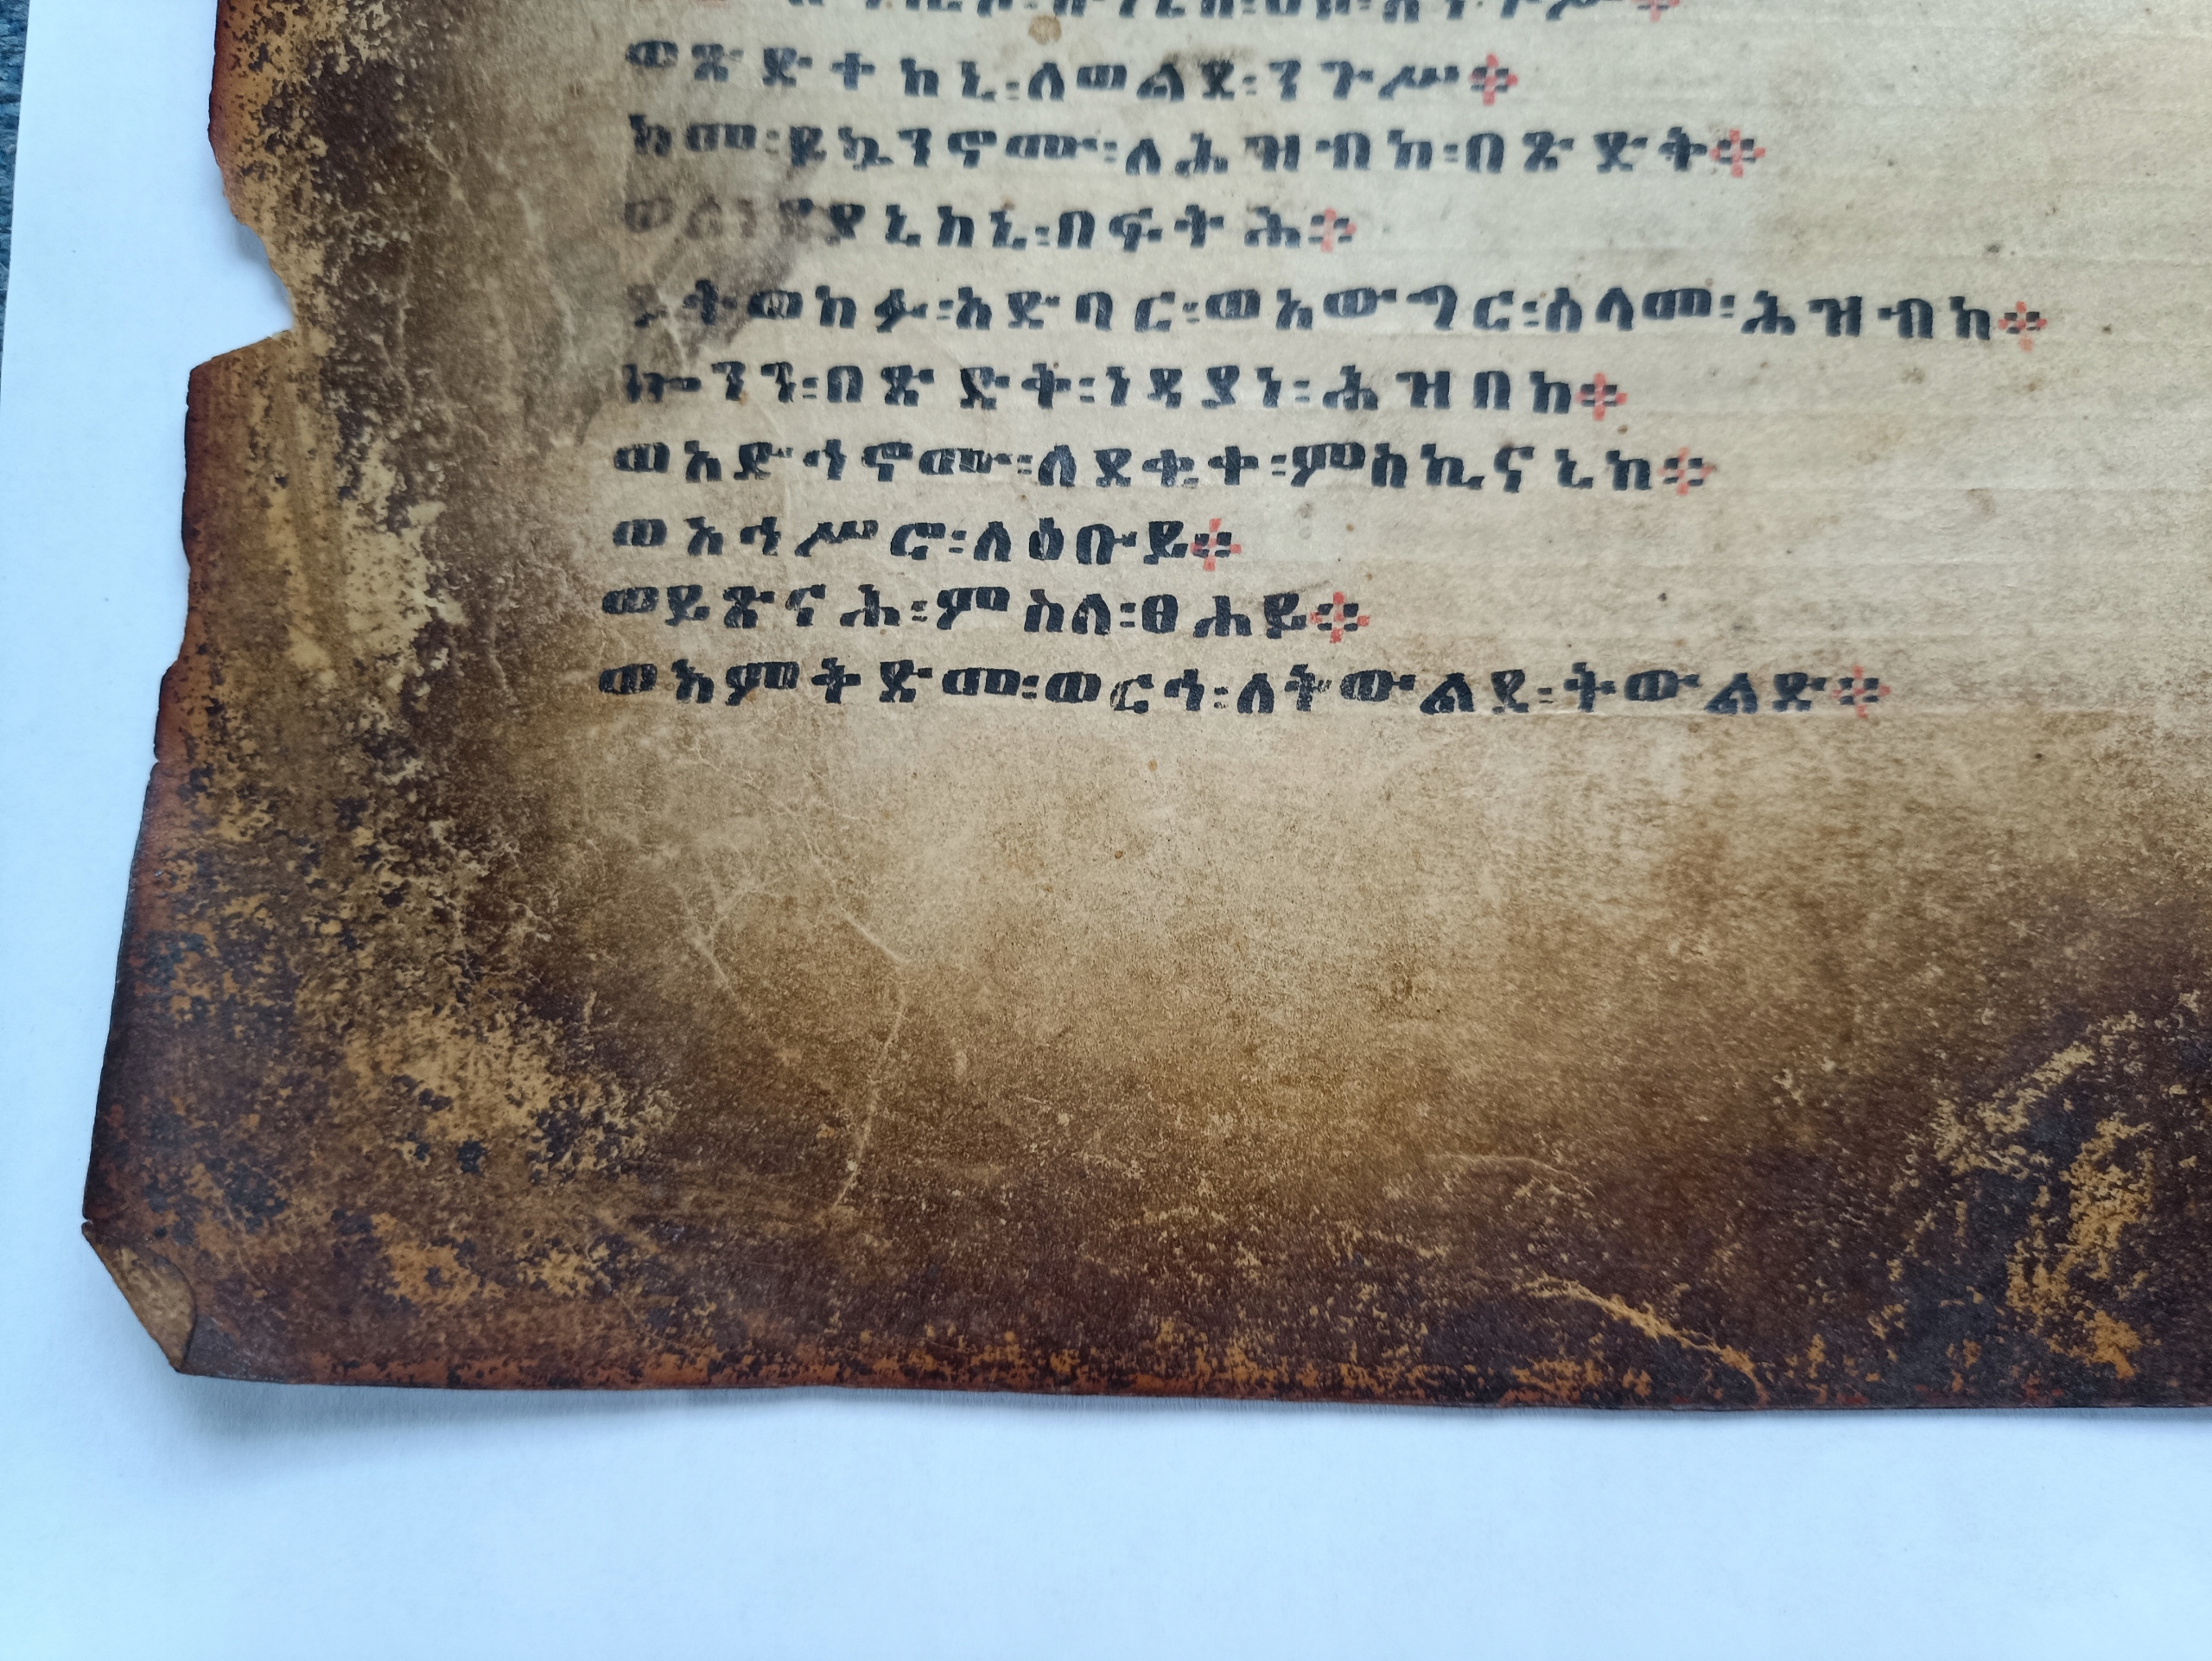 ወጽድቀከኒ፡ለወልደ፡ንጉሥ።
ከመ፡ይኴንኖሙ፡ለሕዝብከ፡በጽድቅ።
ወለነዳያኒከኒ፡በፍትሕ።
ይትወከፉ፡አድባር፡ወአውግር፡ሰላመ፡ሕዝብከ።
ኰንን፡በጽድቅ፡ነዳያነ፡ሕዝበከ።
ወአድኅኖሙ፡ለደቂቀ፡ምስኪናኒከ።
ወአኅሥሮ፡ለዕቡይ።
ወይጽናሕ፡ምስለ፡ፀሐይ።
ወእምቅድመ፡ወርኅ፡ለትውልደ፡ትውልድ።